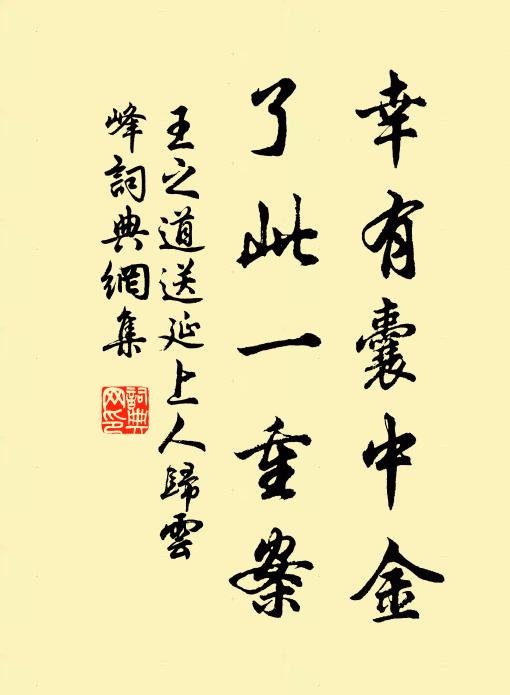 幸有囊中金
了此一重案
王之道送延上人歸雲
峰詞典網集
詞典網印